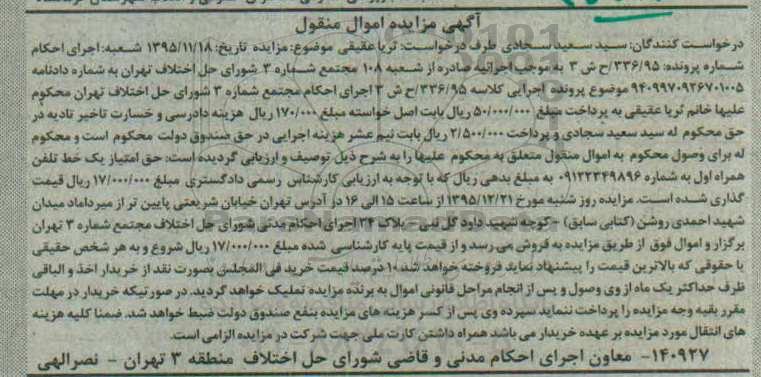 آگهی مزایده اموال منقول
درخواست کنندگان: سید سعید سجادی طرف درخواست: ثریا عقیقی موضوع: مزایده تاریخ: ۱۳۹۵/۱۱/۱۸ شعبه: اجرای احکام
شماره پرونده: ۳۳۶/۹۵/ح ش ۳ به موجب اجرائیه صادره از شعبه ۱۰۸ مجتمع شماره ۳ شورای حل اختلاف تهران به شماره دادنامه
۹۴۰۹۹۷۰۹۲۶۷۰۱۰۰۵ موضوع پرونده اجرایی کلاسه ۳۳۶/۹۵/ح ش ۳ اجرای احکام مجتمع شماره ۳ شورای حل اختلاف تهران محکوم
علیها خانم ثریا عقیقی به پرداخت مبلغ ۵۰/۰۰۰/۰۰۰ ریال بابت اصل خواسته مبلغ ۱۷۰/۰۰۰ ریال هزینه دادرسی و خسارت تاخیر تادیه در
حق محکوم له سید سعید سجادی و پرداخت ۲/۵۰۰/۰۰۰ ریال بابت نیم عشر هزینه اجرایی در حق صندوق دولت محکوم است و محکوم
له برای وصول محکوم به اموال منقول متعلق به محکوم علیها را به شرح ذیل توصیف و ارزیابی گردیده است: حق امتیاز یک خط تلفن
همراه اول به شماره ۰۹۱۲۲۳۴۹۸۹۶ به مبلغ بدهی ریال که با توجه به ارزیابی کارشناس رسمی دادگستری مبلغ ۱۷/۰۰۰/۰۰۰ ریال قیمت
گذاری شده است. مزایده روز شنبه مورخ ۱۳۹۵/۱۲/۲۱ از ساعت ۱۵ الی ۱۶ در آدرس تهران خیابان شریعتی پایین تر از میرداماد میدان
شهید احمدی روشن (کتابی سابق) - کوچه شهید داود گل نبی - پلاک ۳۴ اجرای احکام مدنی شورای حل اختلاف مجتمع شماره ۳ تهران
برگزار و اموال فوق از طریق مزایده به فروش می رسد و از قیمت پایه کارشناسی شده مبلغ ۱۷/۰۰۰/۰۰۰ ریال شروع و به هر شخص حقیقی
یا حقوقی که بالاترین قیمت را پیشنهاد نماید فروخته خواهد شد ۱۰ درصد قیمت خرید فی المجلس بصورت نقد از خریدار اخذ و الباقی
ظرف حداکثر یک ماه از وی وصول و پس از انجام مراحل قانونی اموال به برنده مزایده تملیک خواهد گردید. در صورتیکه خریدار در مهلت
مقرر بقیه وجه مزایده را پرداخت ننماید سپرده وی پس از کسر هزینه های مزایده بنفع صندوق دولت ضبط خواهد شد. ضمنا کلیه هزینه
های انتقال مورد مزایده بر عهده خریدار می باشد همراه داشتن کارت ملی جهت شرکت در مزایده الزامی است.
۱۴۰۹۲۷- معاون اجرای احکام مدنی و قاضی شورای حل اختلاف منطقه ۳ تهران - نصرالهی